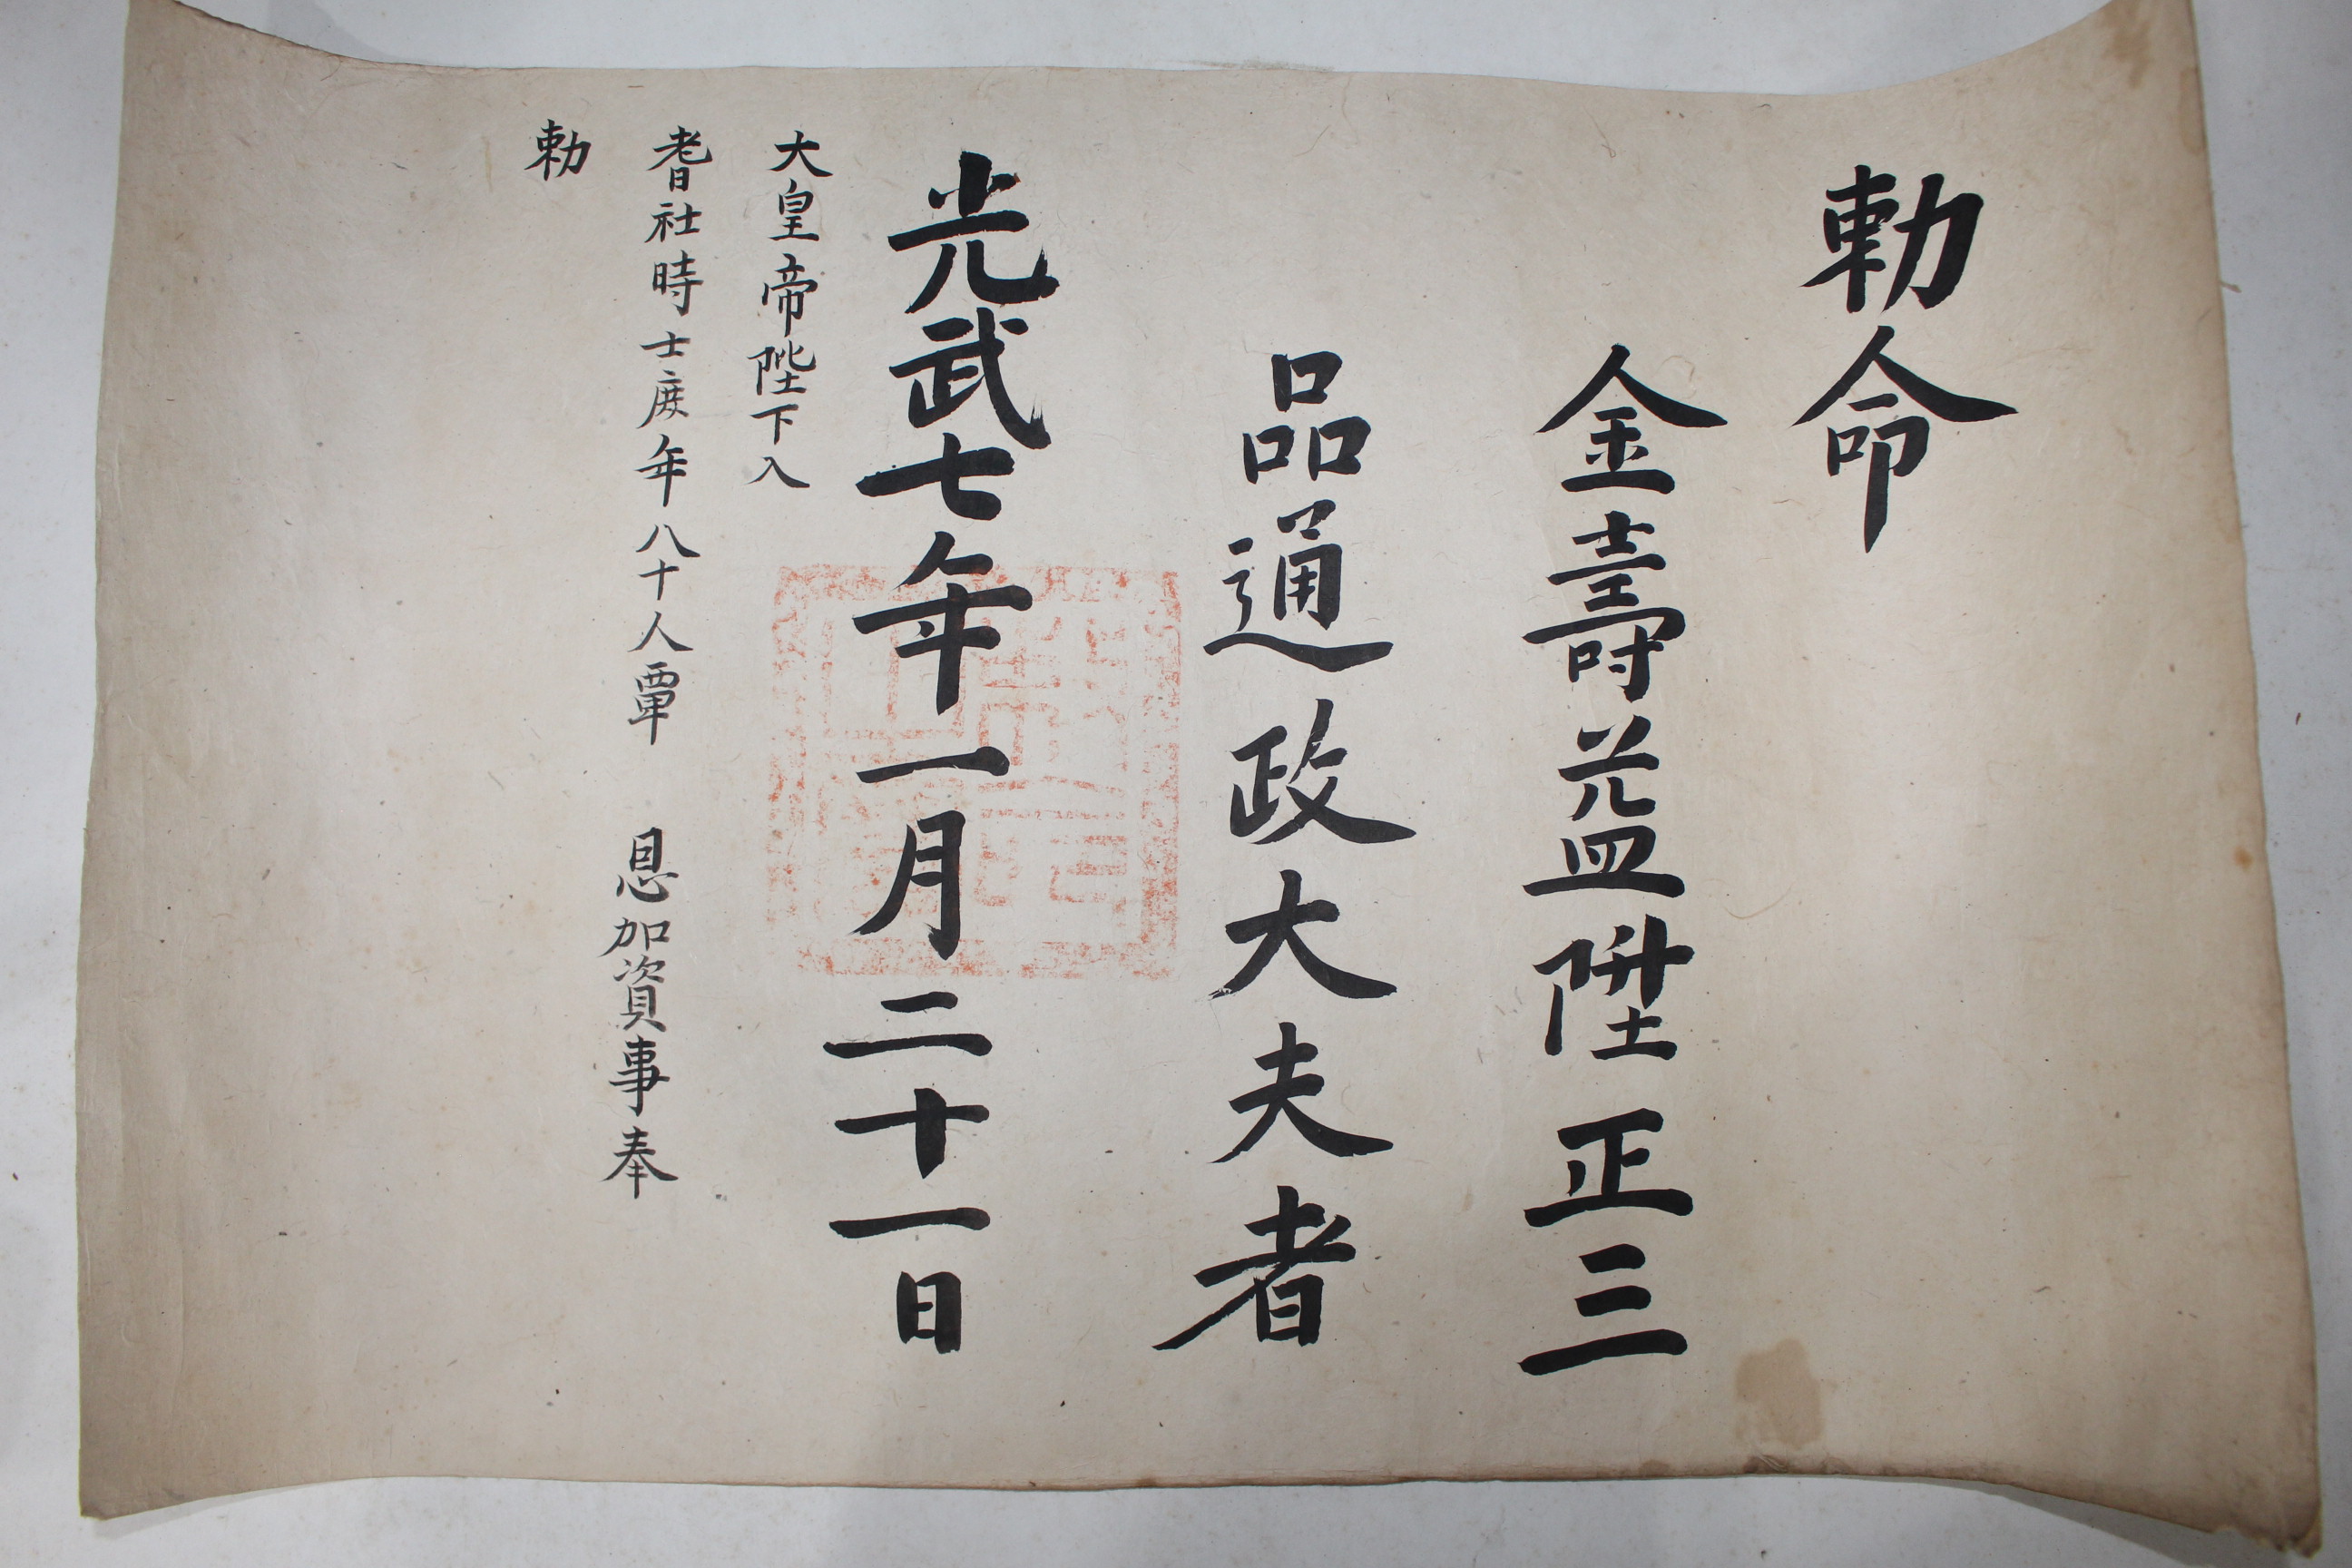 勅命
金壽益陞正三
品通政大夫者
光武七年一月二十一日
大皇帝陛下入
耆社時士庶年八十人覃　恩加資事奉
勅